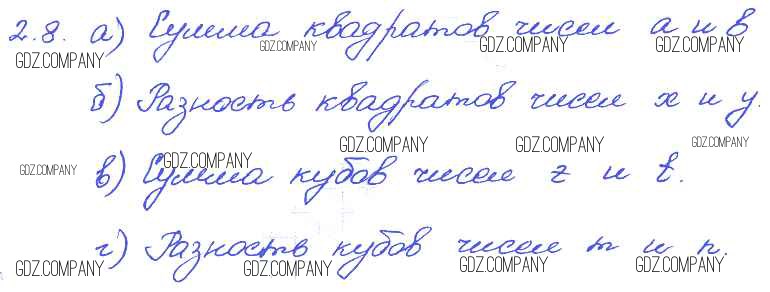 2.8. а) Сумма квадратов чисел a и b
GDZ.COMPANY GDZ.COMPANY GDZ.COMPANY GDZ.COMPANY
б) Разность квадратов чисел x и y.
GDZ.COMPANY GDZ.COMPANY GDZ.COMPANY
GDZ.COMPANY GDZ.COMPANY
в) Сумма кубов чисел z и t.
г) Разность кубов чисел m и n.
GDZ.COMPANY GDZ.COMPANY GDZ.COMPANY GDZ.COMPANY